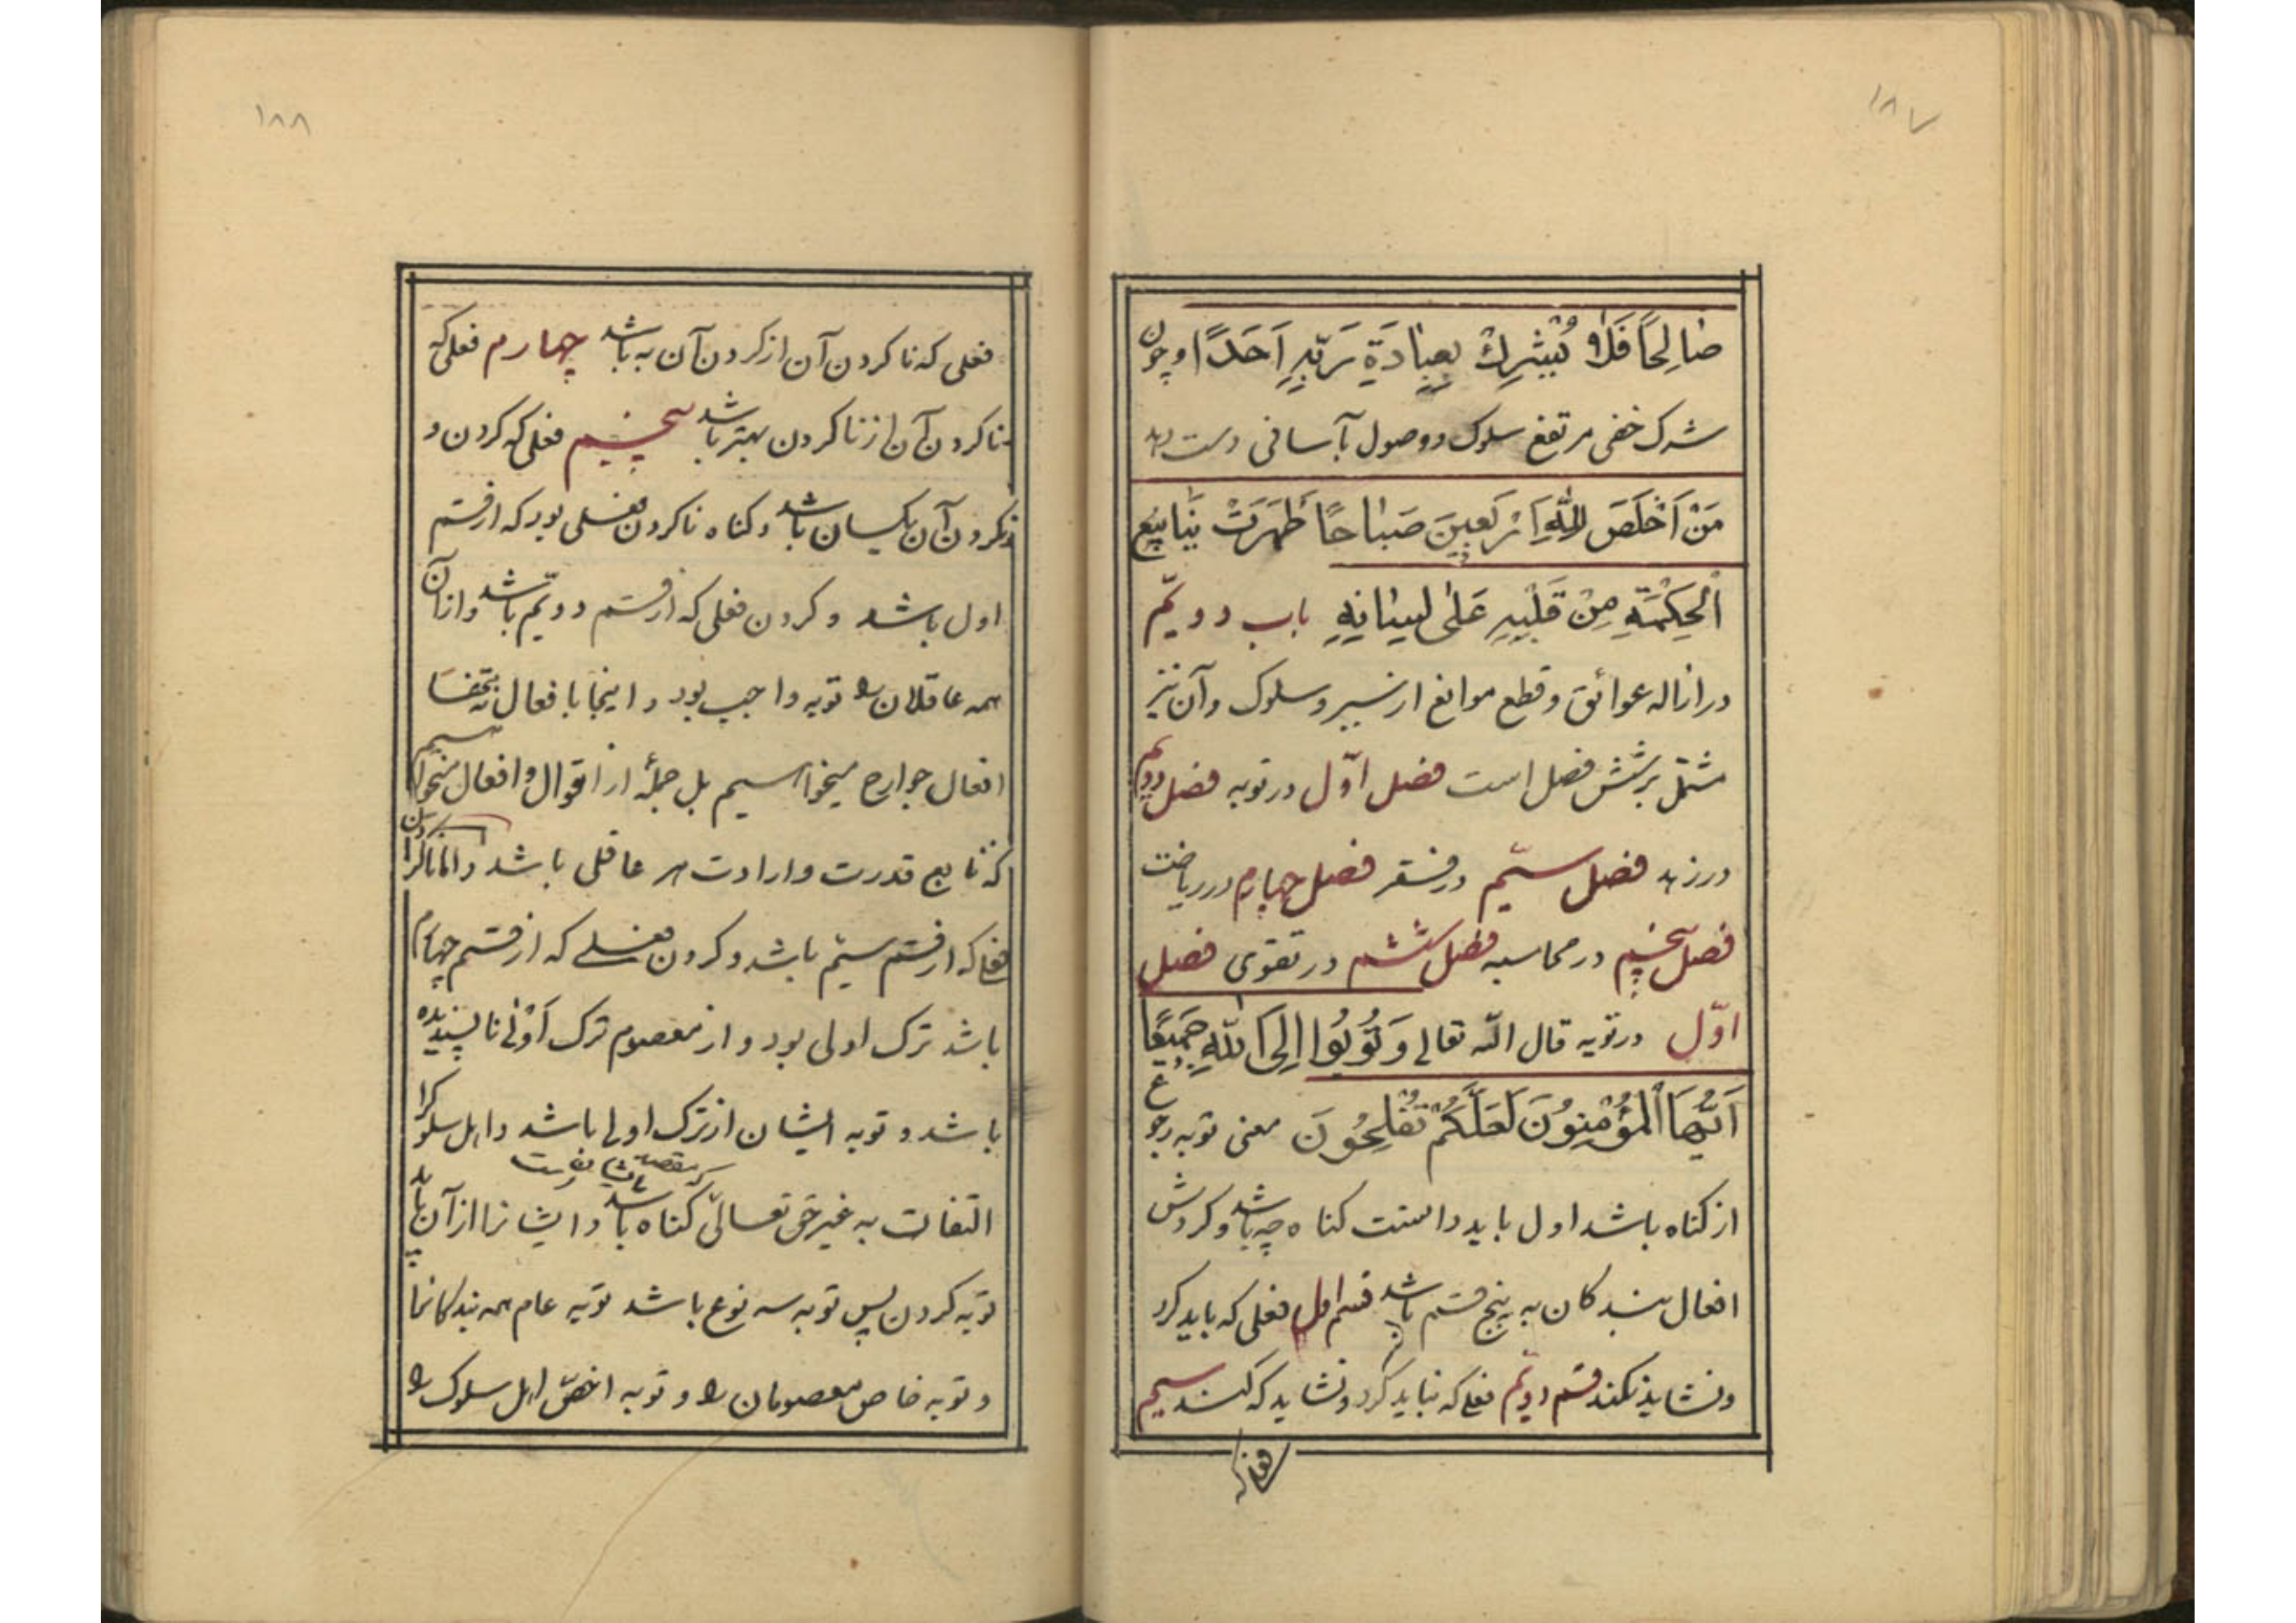 ۱۸۷
صٰالِحًا فَلٰا یُشْرِكْ بِعِبٰادَةِ رَبِّهِ اَحَدًا و چون
شرک خفی مرتفع سلوک و وصول بآسانی دست دهد
مَنْ اَخْلَصَ لِلّٰهِ اَرْبَعِینَ صَبٰاحًا ظَهَرَتْ یَنٰابِیعُ
اَلْحِکْمَةِ مِنْ قَلْبِهِ عَلٰی لِسٰانِهِ باب دویّم
در ازاله عوائق و قطع موانع از سیر و سلوک و آن نیز
مشتمل بر شش فصل است فصل اوّل در توبه فصل دویّم
در زهد فصل سیّم در فقر فصل چهارم در ریاضت
فصل پنجم در محاسبه فصل ششم در تقوی فصل
اوّل در توبه قال اللّه تعالی وَ تُوبُوا اِلَی اللّٰهِ جَمِیعًا
اَیُّهَا الْمُؤْمِنُونَ لَعَلَّکُمْ تُفْلِحُونَ معنی توبه رجوع
از کناه باشد اول باید دانست کناه چه باشد و کردش
افعال بندکان به پنج قسم باشد قسم اول فعلی که باید کرد
و نشاید نکند قسم دویّم فعلی که نباید کرد و نشاید که کنند سیم
فعلی که
۱۸۸
فعلی که ناکردن آن از کردن آن به باشد چهارم فعلی که
ناکردن آن از ناکردن بهتر باشد پنجیم فعلی که کردن و
نکردن آن یکسان باشد و کناه ناکردن فعلی بود که از قسم
اول باشد و کردن فعلی که از قسم دویّم باشد و از آن
همه عاقلان را توبه واجب بود و اینجا بافعال نه تنها
افعال جوارح میخواهیم بل جملهٔ از اقوال و افعال میخواهیم
که تابع قدرت و ارادت هر عاقلی باشد و اما ناکردن
فعلی که از قسم سیّم باشد و کردن فعلی که از قسم چهارم
باشد ترک اولی بود و از معصوم ترک اَوْلٰی ناپسندیده
باشد و توبه ایشان از ترک اولی باشد و اهل سلوک را
که مقصد ایشان است
التفات به غیر حق تعالیٰ کناه باشد و ایشانرا از آن باید
توبه کردن پس توبه سه نوع باشد توبه عام همه بندکانرا
و توبه خاص معصومان را و توبه اخصّ اهل سلوک را